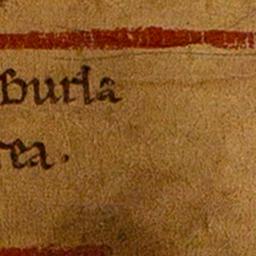 burla
rea.